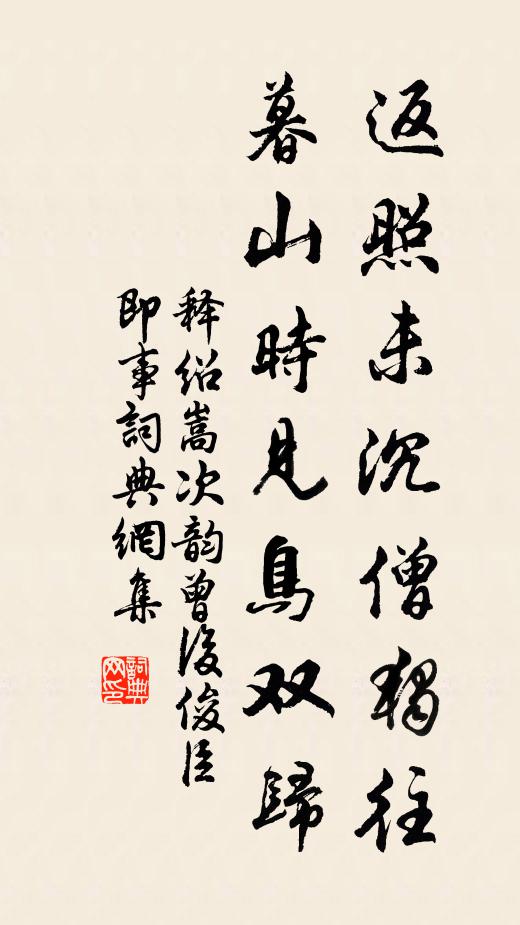 返照未沉僧獨往
暮山時見鳥双歸
释绍嵩次韵曾復俊臣
即事詞典網集
詞典网印